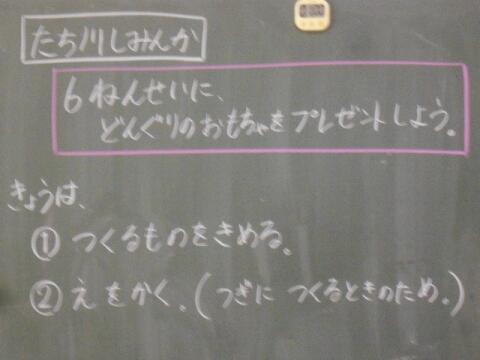 たち川しみんか
6ねんせいに、
どんぐりのおもちゃをプレゼントしよう。
きょうは、
①つくるものをきめる。
②えをかく。(つぎに つくるときのため。)